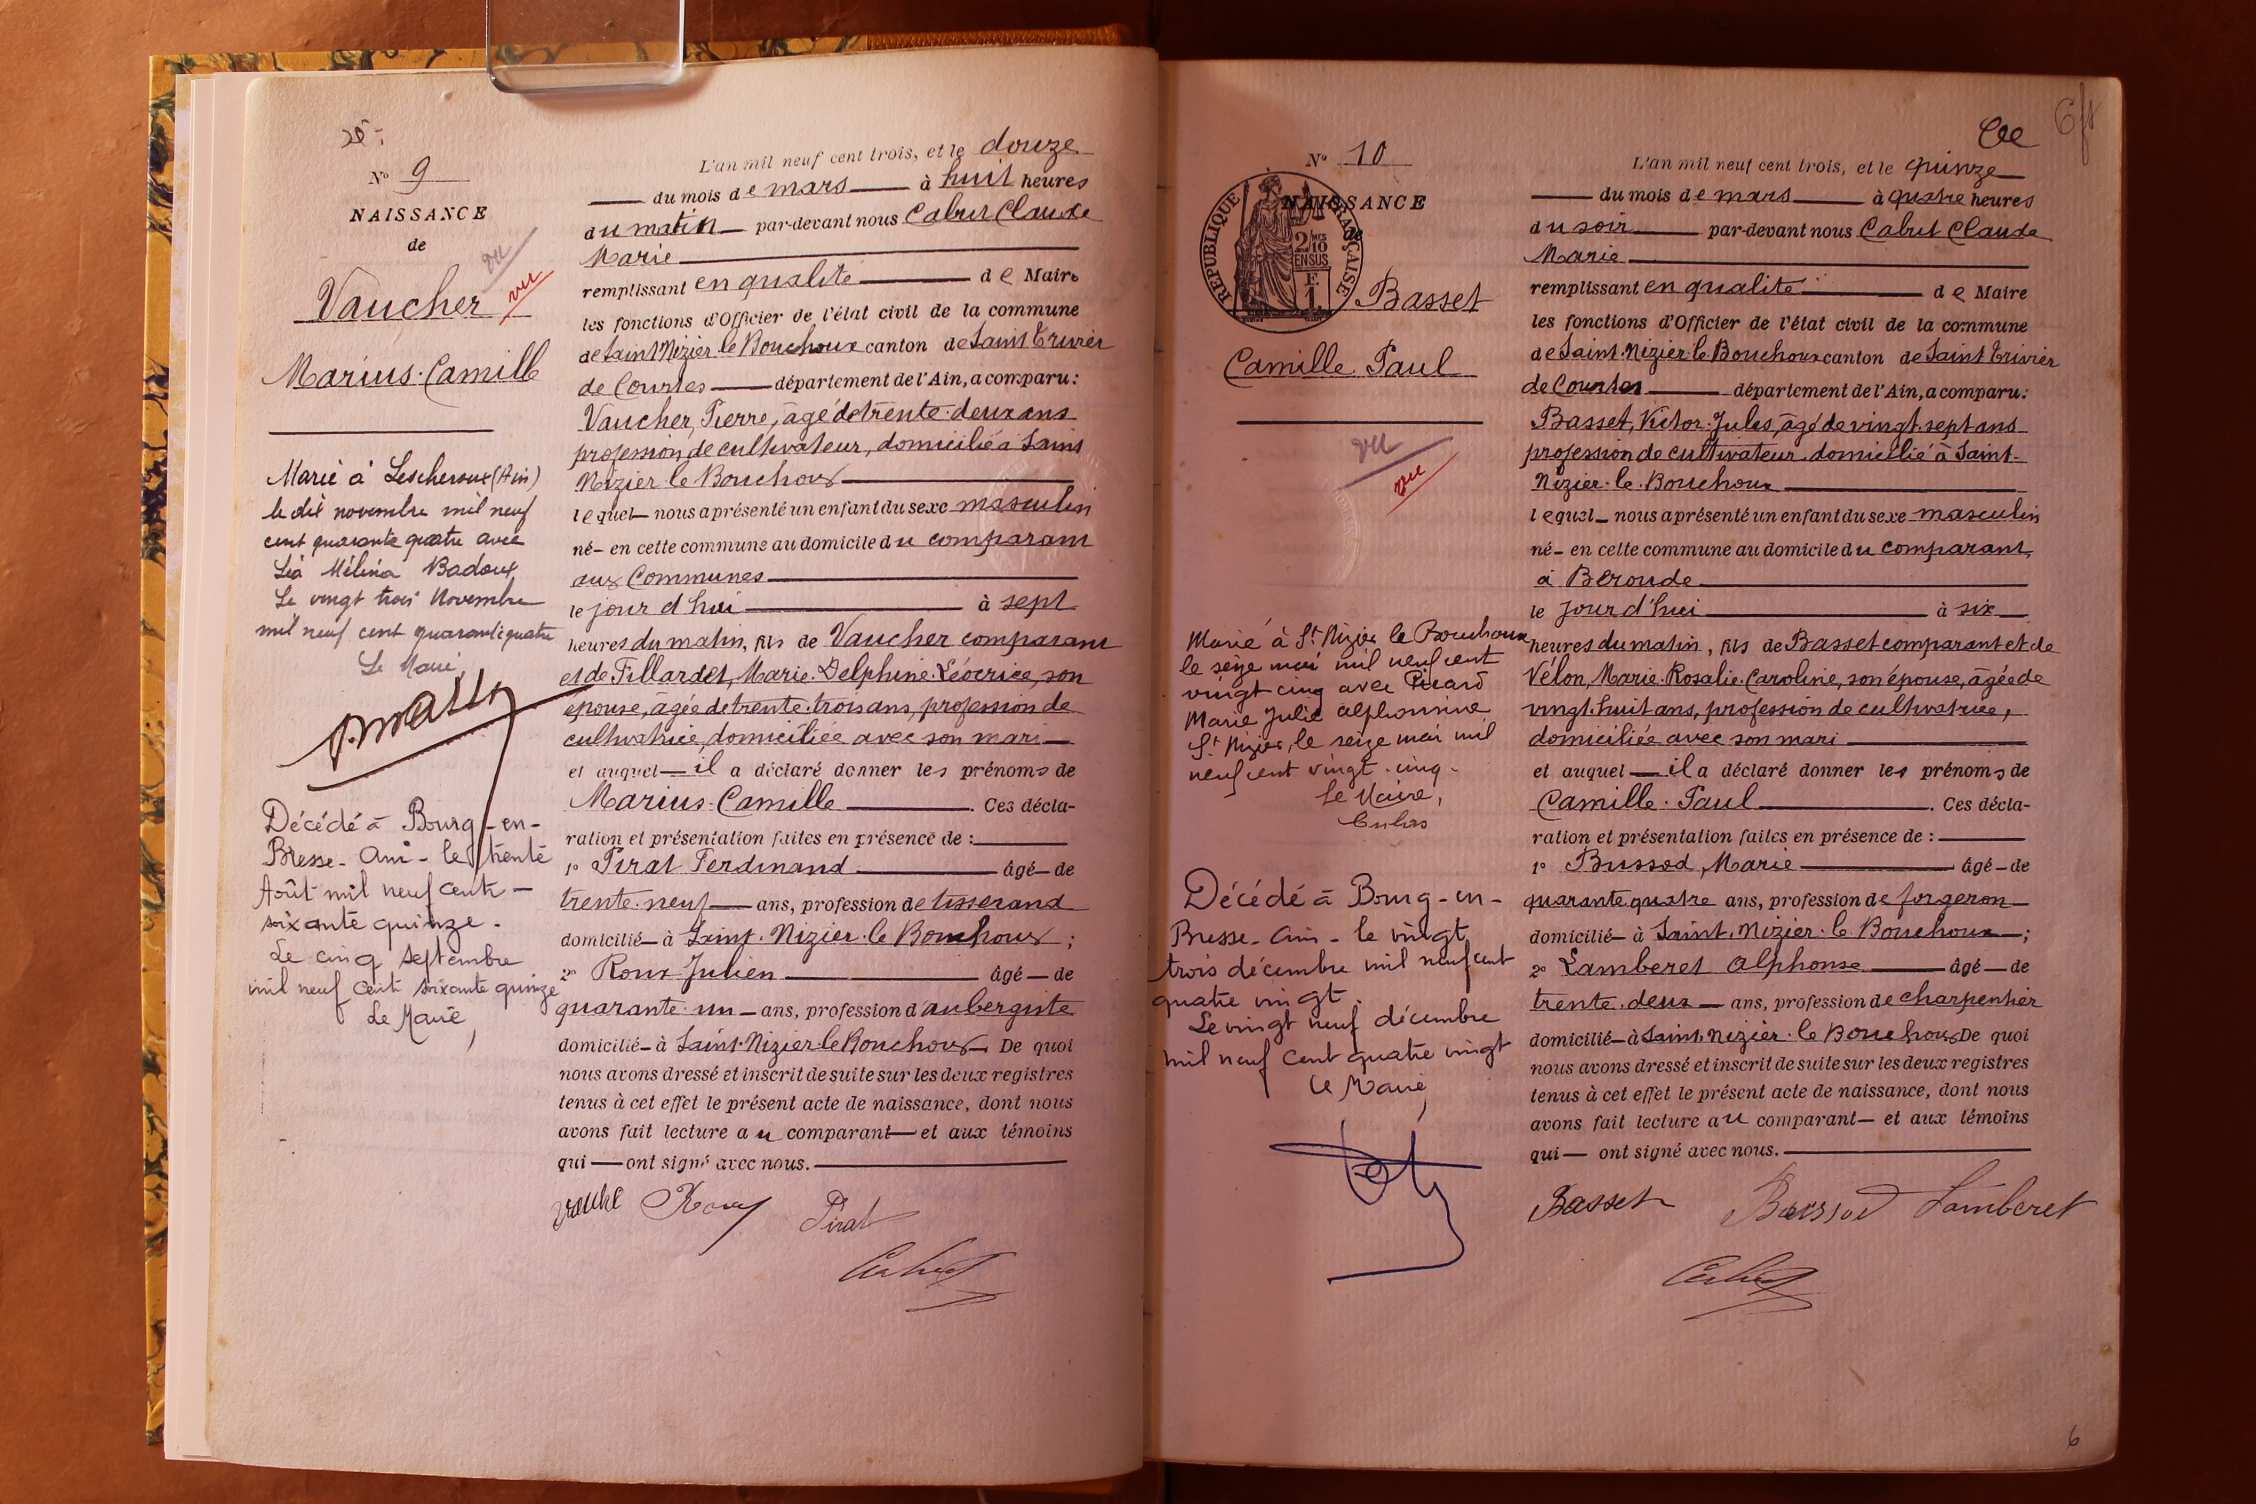 N° 9
NAISSANCE
de
Vaucher
vu
vu
Marius-Camille
Marié à Lescheroux (Ain)
le dix novembre mil neuf
cent quarante quatre avec
Léa Mélina Badoux
Le vingt trois Novembre
mil neuf cent quarante quatre
Le Maire,
Décédé à Bourg-en-
Bresse - Ain - le trente
Août mil neuf cent
soixante quinze.
Le cinq septembre
mil neuf cent soixante quinze
Le Maire,
L'an mil neuf cent trois, et le douze
du mois de mars à huit heures
du matin par-devant nous Cabut Claude
Marie
remplissant en qualité de Maire
les fonctions d'Officier de l'état civil de la commune
de Saint Nizier le Bouchoux canton de Saint Trivier
de Courtes département de l'Ain, a comparu:
Vaucher, Pierre, âgé de trente-deux ans
profession de cultivateur, domicilié à Saint
Nizier le Bouchoux
lequel nous a présenté un enfant du sexe masculin
né en cette commune au domicile du comparant
aux Communes
le jour d'hui à sept
heures du matin, fils de Vaucher comparant
et de Tillardet, Marie-Delphine-Léocrice, son
épouse, âgée de trente-trois ans, profession de
cultivatrice, domiciliée avec son mari
et auquel il a déclaré donner les prénoms de
Marius-Camille. Ces décla-
ration et présentation faites en présence de :
1° Pirat Ferdinand âgé de
trente-neuf ans, profession de tisserand
domicilié à Saint-Nizier-le Bouchoux ;
2° Roux Julien âgé de
quarante-un ans, profession d'aubergiste
domicilié à Saint-Nizier-le Bouchoux. De quoi
nous avons dressé et inscrit de suite sur les deux registres
tenus à cet effet le présent acte de naissance, dont nous
avons fait lecture au comparant et aux témoins
qui ont signé avec nous.
Roux Pirat
Cabut
6
N° 10
NAISSANCE
de
RÉPUBLIQUE FRANÇAISE
2/10 EN SUS
Basset
Camille Paul
vu
vu
Marié à St Nizier le Bouchoux
le seize mai mil neuf cent
vingt cinq avec Picard
Marie Julie Alphonsine
St Nizier, le seize mai mil
neuf cent vingt-cinq.
Le Maire,
Décédé à Bourg-en-
Bresse - Ain - le vingt
trois décembre mil neuf cent
quatre vingt.
Le vingt neuf décembre
mil neuf cent quatre vingt
Le Maire,
L'an mil neuf cent trois, et le quinze
du mois de mars à quatre heures
du soir par-devant nous Cabut Claude
Marie
remplissant en qualité de Maire
les fonctions d'Officier de l'état civil de la commune
de Saint-Nizier-le Bouchoux canton de Saint Trivier
de Courtes département de l'Ain, a comparu:
Basset, Victor-Jules, âgé de vingt-sept ans
profession de cultivateur domicilié à Saint-
Nizier-le-Bouchoux
lequel nous a présenté un enfant du sexe masculin
né en cette commune au domicile du comparant,
à Beroude
le jour d'hui à six
heures du matin, fils de Basset comparant et de
Vélon, Marie-Rosalie-Caroline, son épouse, âgée de
vingt-huit ans, profession de cultivatrice,
domiciliée avec son mari
et auquel il a déclaré donner les prénoms de
Camille-Paul. Ces décla-
ration et présentation faites en présence de :
1° Bussod, Marie âgé de
quarante quatre ans, profession de forgeron
domicilié à Saint-Nizier-le Bouchoux ;
2° Lamberet Alphonse âgé de
trente-deux ans, profession de charpentier
domicilié à Saint-Nizier-le Bouchoux De quoi
nous avons dressé et inscrit de suite sur les deux registres
tenus à cet effet le présent acte de naissance, dont nous
avons fait lecture au comparant et aux témoins
qui ont signé avec nous.
Basset Bussod Lamberet
Cabut
6